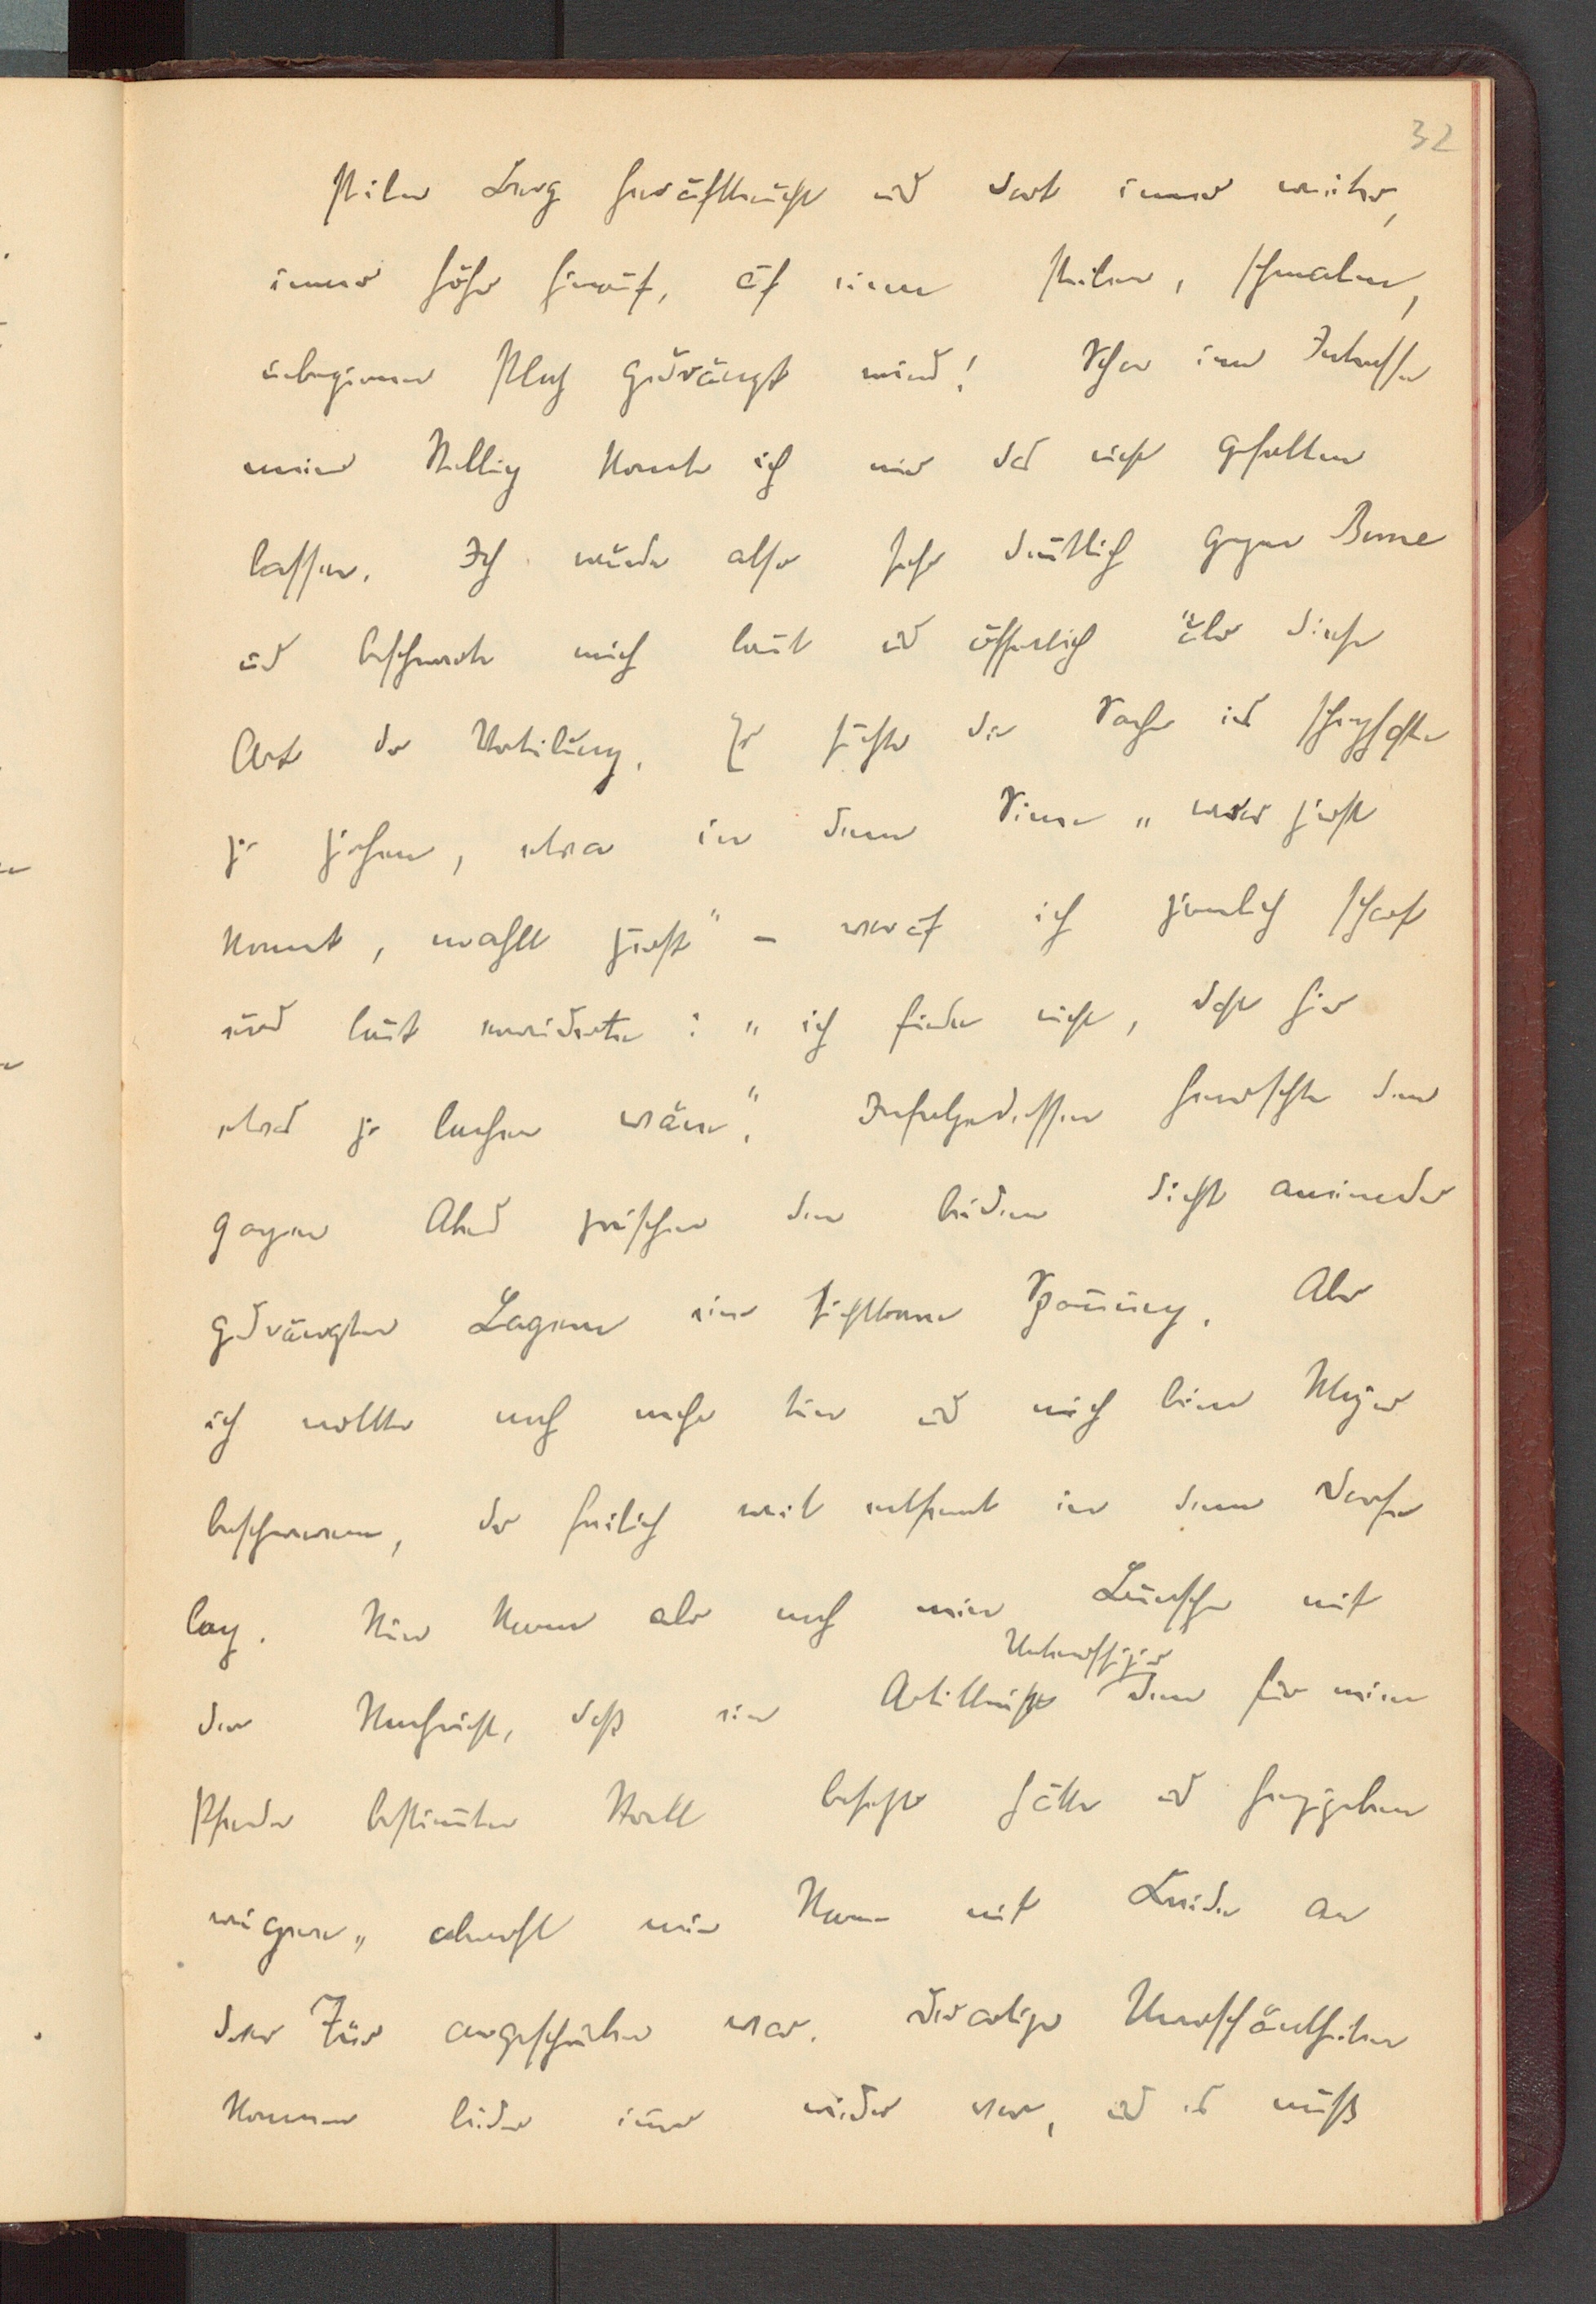 32
steilen Berg heraufkriecht und dort immer weiter,
immer höher hinauf, auf einen steilen, schmalen,
unbequemen Platz gedrängt wird! Schon im Interesse
meiner Stellung konnte ich mir das nicht gefallen
lassen. Ich wurde also sehr deutlich gegen Benne
und beschwerte mich laut und öffentlich über diese
Art der Verteilung. Er suchte die Sache ins scherzhafte
zu ziehen, etwa in dem Sinne „wer zuerst
kommt, mahlt zuerst" – worauf ich ziemlich scharf
und laut erwiderte: „ich finde nicht, daß hier
etwas zu lachen wäre". Infolgedessen herrschte den
ganzen Abend zwischen den beiden dicht aneinander
gedrängten Lagern eine sichtbare Spannung. Aber
ich wollte noch mehr tun und mich beim Major
beschweren, der freilich weit entfernt in dem Dorfe
lag. Nun kam aber noch mein Bursche mit
der Nachricht, daß ein Artillerist Unteroffizier den für meine
Pferde bestimmten Stall besetzt hätte und herzugeben
weigere, obwohl mein Name mit Kreide an
der Tür angeschrieben war. Derartige Unverschämtheiten
kommen leider immer wieder vor, und es muß